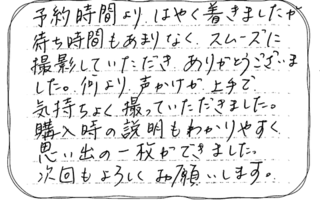 予約時間より はやく着きましたが
待ち時間もあまりなく、スムーズに
撮影していただき ありがとうございま
した。何より 声かけが 上手で
気持ちよく 撮っていただきました。
購入時の説明もわかりやすく
思い出の一枚ができました。
次回もよろしく お願いします。